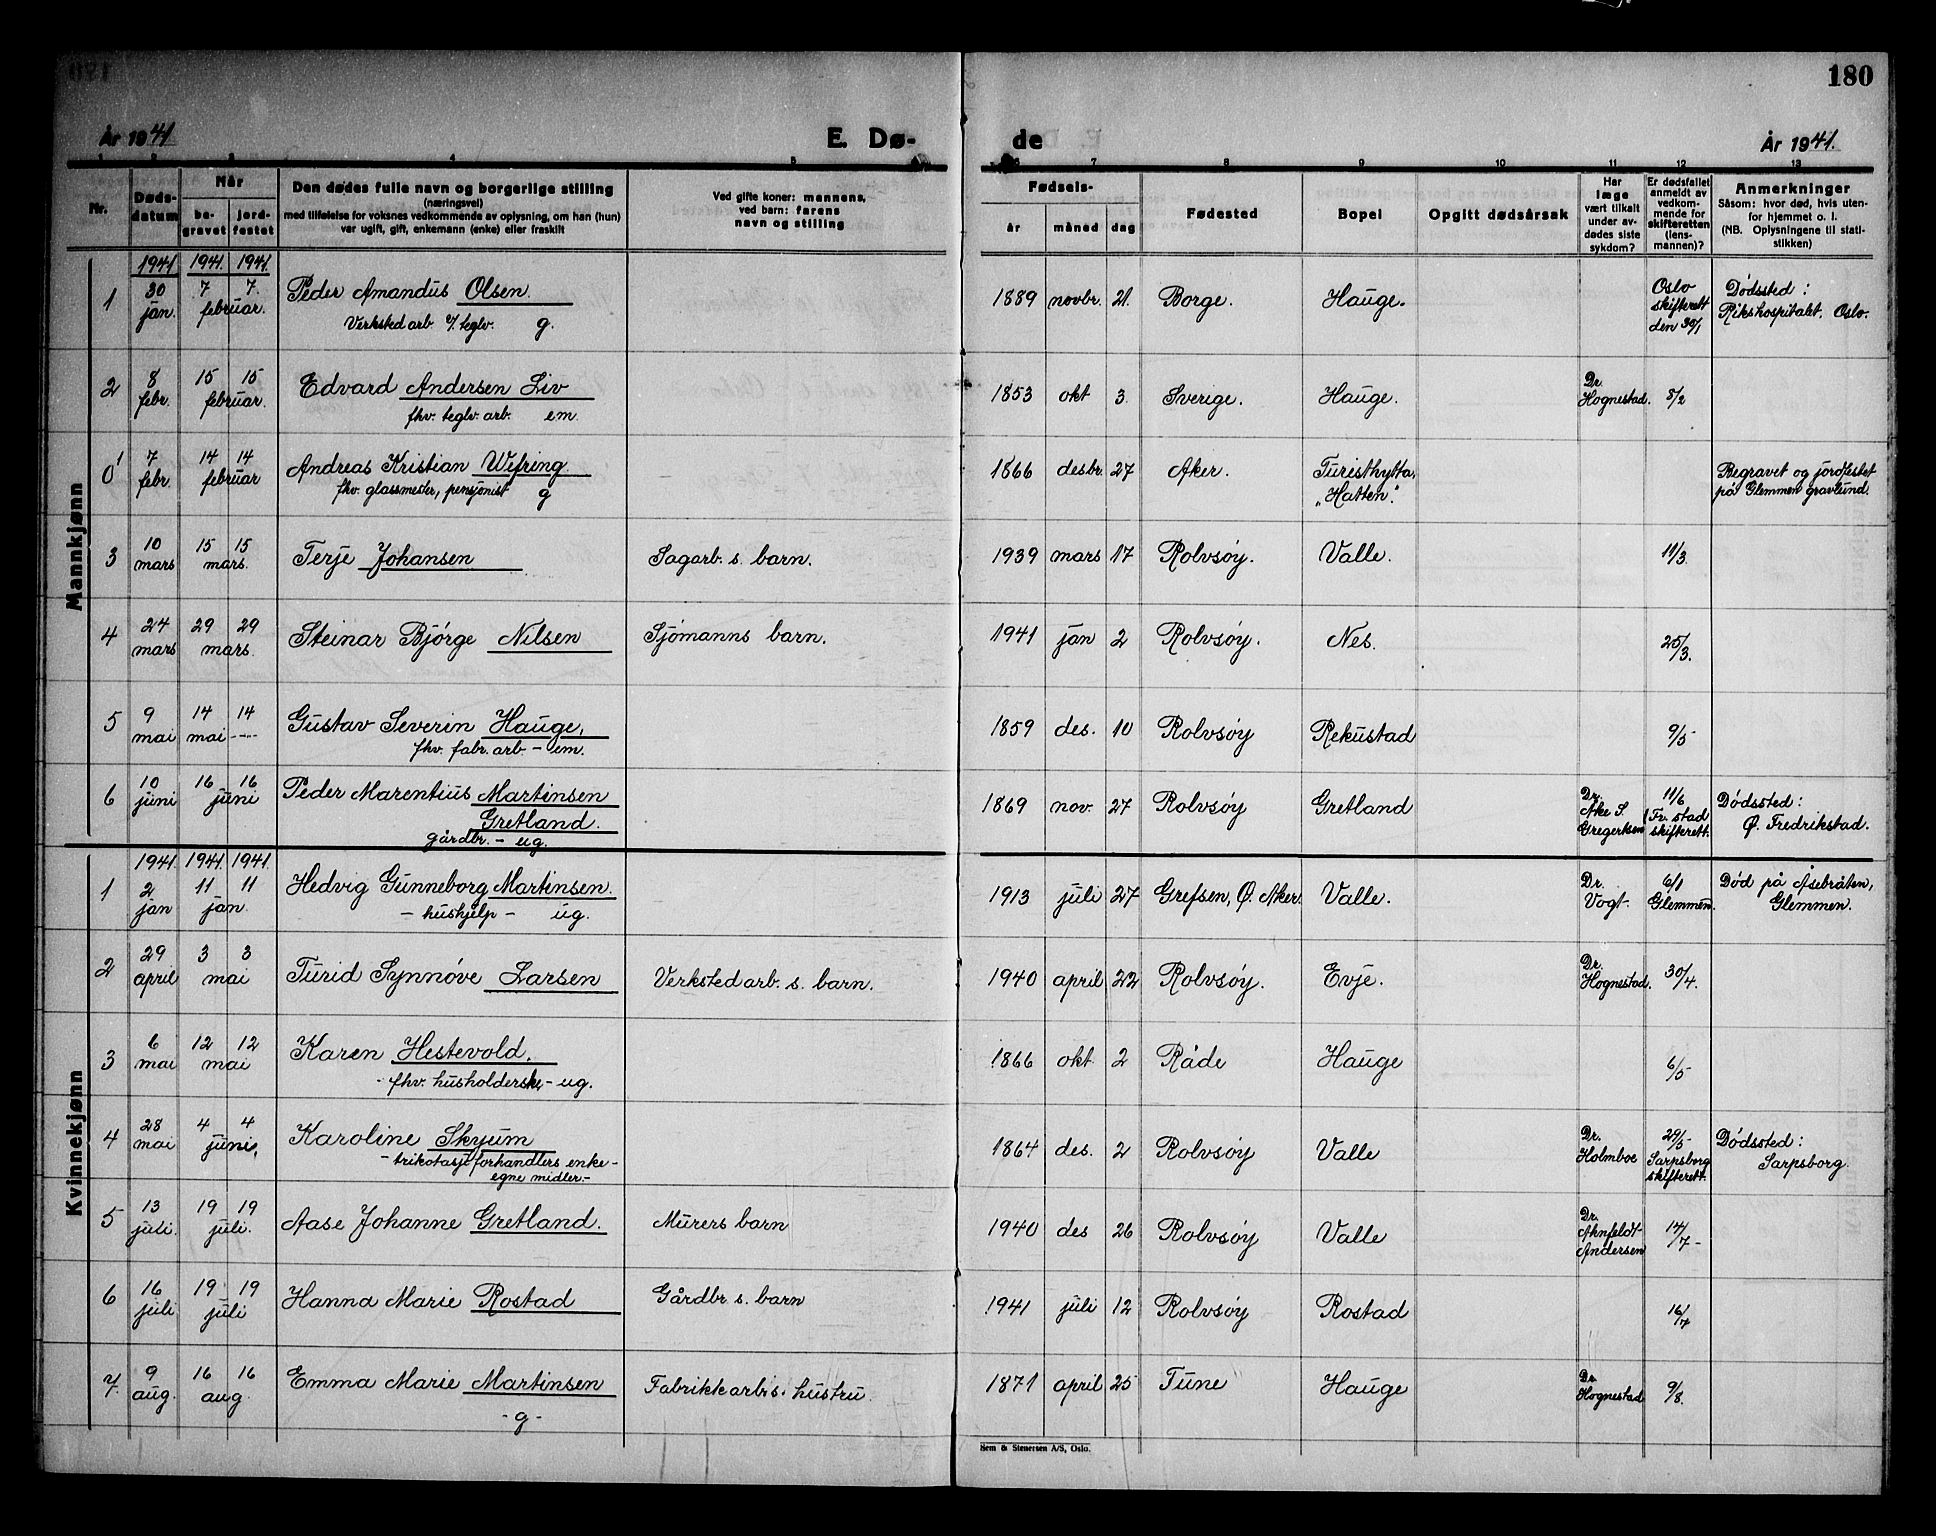 180
År 1941
E. Dø-
de
År 1941.
1 2 3 4 5 6 7 8 9 10 11 12 13
Nr.
Døds-
datum
Når
be-
gravet
jord-
festet
Den dødes fulle navn og borgerlige stilling
(næringsvei)
med tilføielse for voksnes vedkommende av oplysning, om han (hun)
var ugift, gift, enkemann (enke) eller fraskilt
Ved gifte koner: mannens,
ved barn: farens
navn og stilling
Fødsels-
år måned dag
Fødested
Bopel
Opgitt dødsårsak
Har
læge
vært tilkalt
under av-
dødes siste
sykdom?
Er dødsfallet
anmeldt av
vedkom-
mende for
skifteretten
(lens-
mannen)?
Anmerkninger
Såsom: hvor død, hvis uten-
for hjemmet o. l.
(NB. Oplysningene til stati-
stikken)
Mannkjønn
1941 1941. 1941.
1 30 jan. 7 7. februar. Peder Amandus Olsen.
Verkstedarb v/ teglv. g.
1889 novbr. 21. Borge. Hauge. Oslo skifterett den 30/1 Dødssted: Rikshospitalet. Oslo.
2 8 febr. 15 15 februar. Edvard Andersen Liv
fhv. teglv. arb. em.
1853 okt 3. Sverige. Hauge. Dr. Hognestad. 8/2
0¹ 7 febr. 14 14 februar Andreas Kristian Wefring.
fhv. glassmester, pensjonist g
1866 desbr. 27 Aker. Turisthytta, "Hatten". Begravet og jordfestet på Glemmen gravlund.
3 10 mars 15 15 mars. Terje Johansen Sagarb. s. barn.
1939 mars 17 Rolvsøy. Valle. 11/3.
4 24 mars 29 29 mars. Steinar Bjørge Nilsen Sjømanns barn.
1941 jan 2 Rolvsøy. Nes. 25/3.
5 9 mai 14 14 mai ---- Gustav Severin Hauge,
fhv. fabr. arb. - em.
1859 des. 10 Rolvsøy Rekustad 9/5-
6 10 juni 16 16 juni Peder Marentius Martinsen
Gretland.
gårdbr. - ug.
1869 nov. 27 Rolvsøy Gretland Dr. Ake S. Gregertsen 11/6 Fr.stad skifterett. Dødssted: Ø. Fredrikstad.
Kvinnekjønn
1941. 1941. 1941.
1 2 jan 11 11 jan. Hedvig Gunneborg Martinsen.
- hushjelp - ug.
1913 juli 27 Grefsen, Ø. Aker. Valle. Dr. Vogt. 6/1 Glemmen. Død på Åsebråten, Glemmen.
2 29 april 3 3 mai Turid Synnøve Larsen Verkstedarb. s. barn.
1940 april 22 Rolvsøy. Evje. Dr. Hognestad. 30/4.
3 6 mai 12 12 mai Karen Hestevold.
- fhv. husholderske, - ug.
1866 okt 2 Råde Hauge 6/5-
4 28 mai 4 4 juni, Karoline Skyum
- trikotasjeforhandlers enke -
egne midler. -
1864 des. 2 Rolvsøy Valle Dr. Holmboe 29/5- Sarpsborg skifterett. Dødssted: Sarpsborg.
5 13 juli. 19 19 juli. Aase Johanne Gretland. Murers barn
1940 des 26 Rolvsøy Valle Dr. Ahnfeldt- Andersen 14/7-
6 16 juli 19 19 juli Hanna Marie Rostad Gårdbr s. barn
1941 juli 12 Rolvsøy Rostad 16/7
7. 9 aug. 16 16 aug Emma Marie Martinsen Fabrikkarb.s. hustru.
- g -
1871 april 25 Tune Hauge Dr. Hognestad 9/8.
Sem & Stenersen A/S, Oslo.